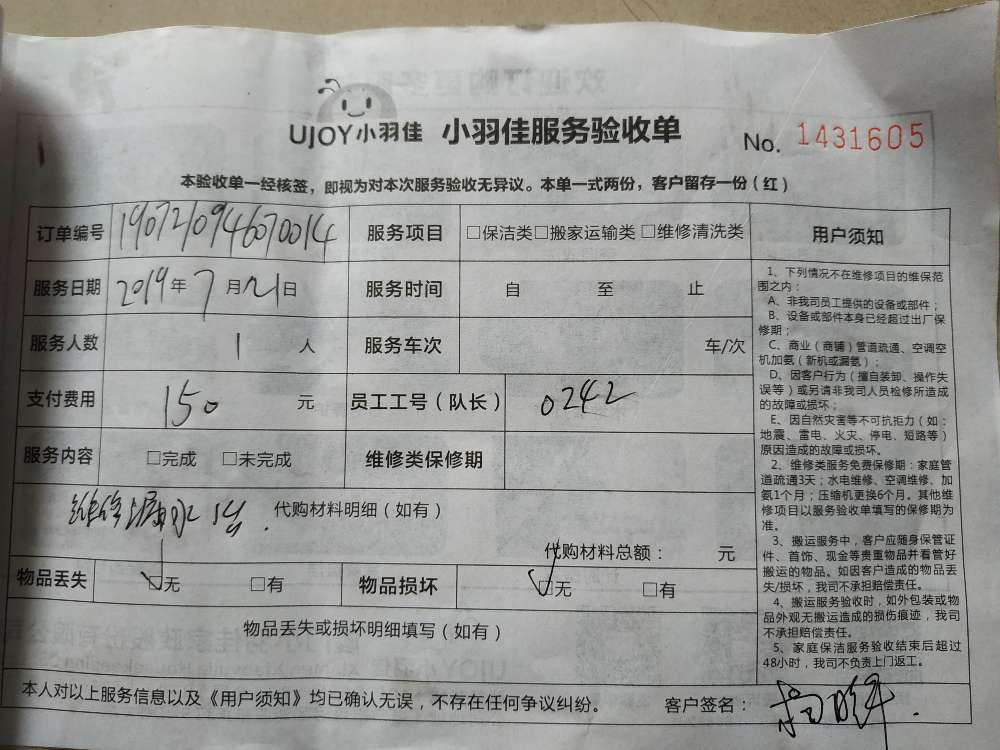 UJOY小羽佳 小羽佳服务验收单 No. 1431605
本验收单一经核签，即视为对本次服务验收无异议。本单一式两份，客户留存一份（红）
订单编号 190721094670014 服务项目 □保洁类□搬家运输类□维修清洗类
服务日期 2019年7月21日 服务时间 自 至 止
服务人数 1 人 服务车次 车/次
支付费用 150 元 员工工号（队长） 0242
服务内容 □完成 □未完成 维修类保修期
维修漏水 代购材料明细（如有）
代购材料总额： 元
物品丢失 ☑无 □有 物品损坏 ☑无 □有
物品丢失或损坏明细填写（如有）
用户须知
1、下列情况不在维修项目的维保范
围之内：
A、非我司员工提供的设备或部件；
B、设备或部件本身已经超过出厂保
修期；
C、商业（商铺）管道疏通、空调空
机加氨（新机或漏氨）；
D、因客户行为（擅自装卸、操作失
误等）或另请非我司人员检修所造成
的故障或损坏；
E、因自然灾害等不可抗拒力（如：
地震、雷电、火灾、停电、短路等）
原因造成的故障或损坏。
2、维修类服务免费保修期：家庭管
道疏通3天；水电维修、空调维修、加
氨1个月；压缩机更换6个月。其他维
修项目以服务验收单填写的保修期为
准。
3、搬运服务中，客户应随身保管证
件、首饰、现金等贵重物品并看管好
搬运的物品。如因客户造成的物品丢
失/损坏，我司不承担赔偿责任。
4、搬运服务验收时，如外包装或物
品外观无搬运造成的损伤痕迹，我司
不承担赔偿责任。
5、家庭保洁服务验收结束后超过
48小时，我司不负责上门返工。
本人对以上服务信息以及《用户须知》均已确认无误，不存在任何争议纠纷。 客户签名：